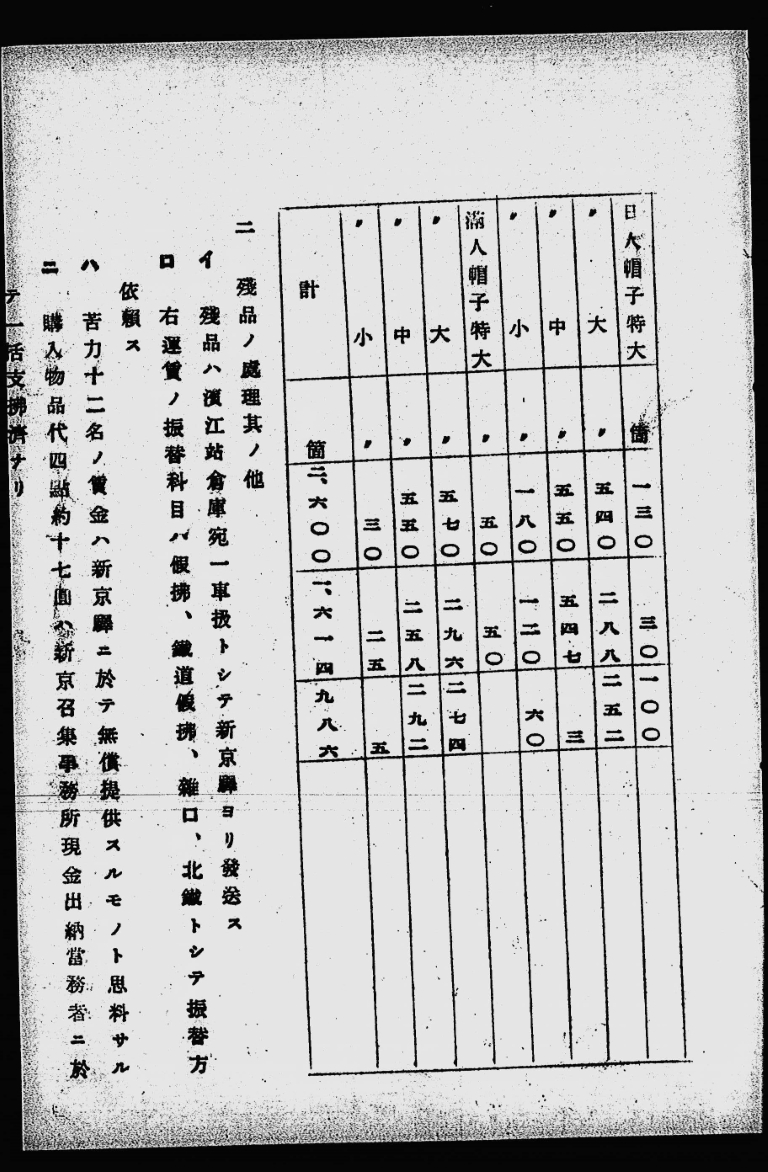 日人帽子特大 箇 一三〇 三〇 一〇〇
〃 大 〃 五四〇 二八八 二五二
〃 中 〃 五五〇 五四七 三
〃 小 〃 一八〇 一二〇 六〇
滿人帽子特大 〃 五〇 五〇
〃 大 〃 五七〇 二九六 二七四
〃 中 〃 五五〇 二五八 二九二
〃 小 〃 三〇 二五 五
計 箇 二、六〇〇 一、六一四 九八六
二 殘品ノ處理其ノ他
イ 殘品ハ濱江站倉庫宛一車扱トシテ新京驛ヨリ發送ス
ロ 右運賃ノ振替科目ハ假拂、鐵道假拂、雜口、北鐵トシテ振替方
依賴ス
ハ 苦力十二名ノ賃金ハ新京驛ニ於テ無償提供スルモノト思料サル
ニ 購入物品代四點約十七圓ハ新京召集事務所現金出納當務者ニ於
テ一括支拂濟ナリ